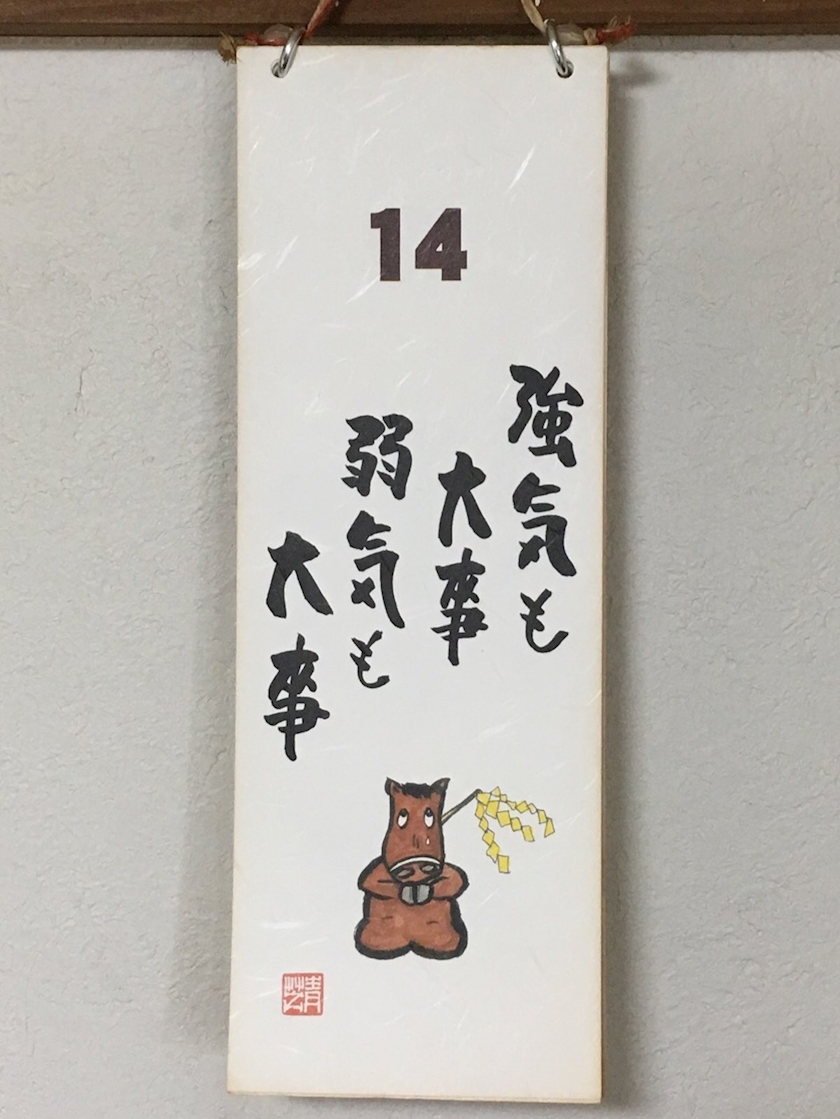 14
強気も
大事
弱気も
大事